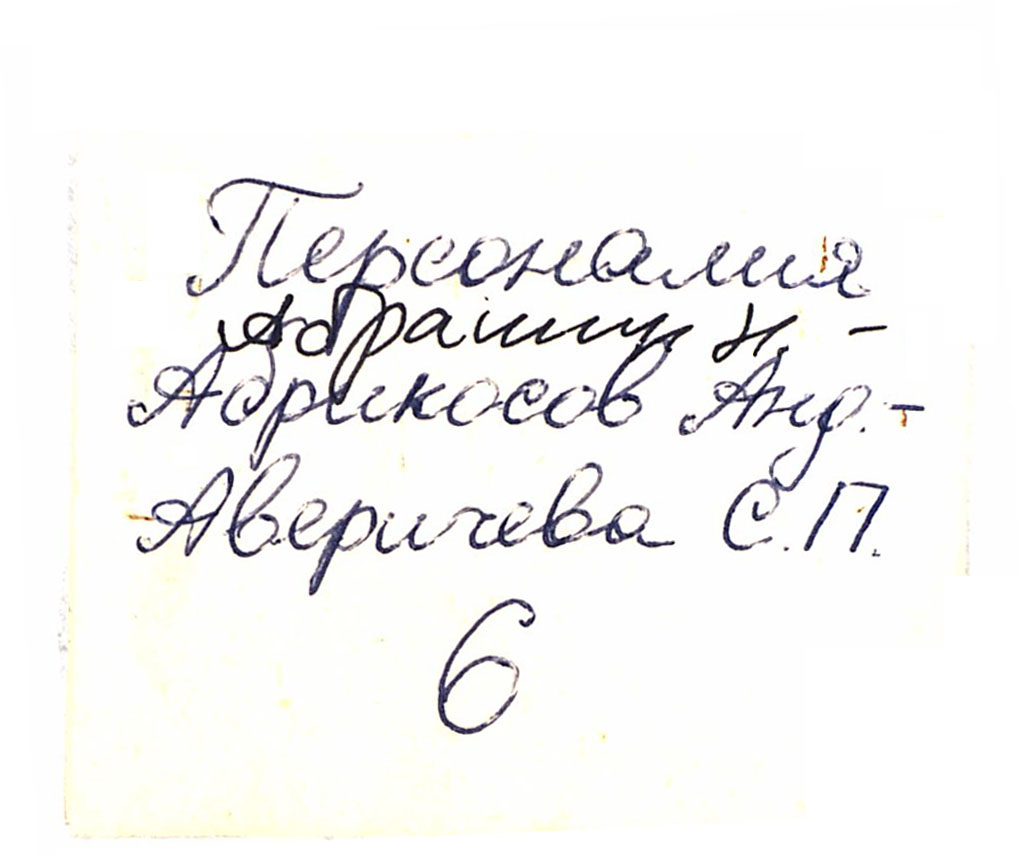 Персоналия
Абрашин Н. -
Абрикосов Анд. -
Аверичева С.П.
6